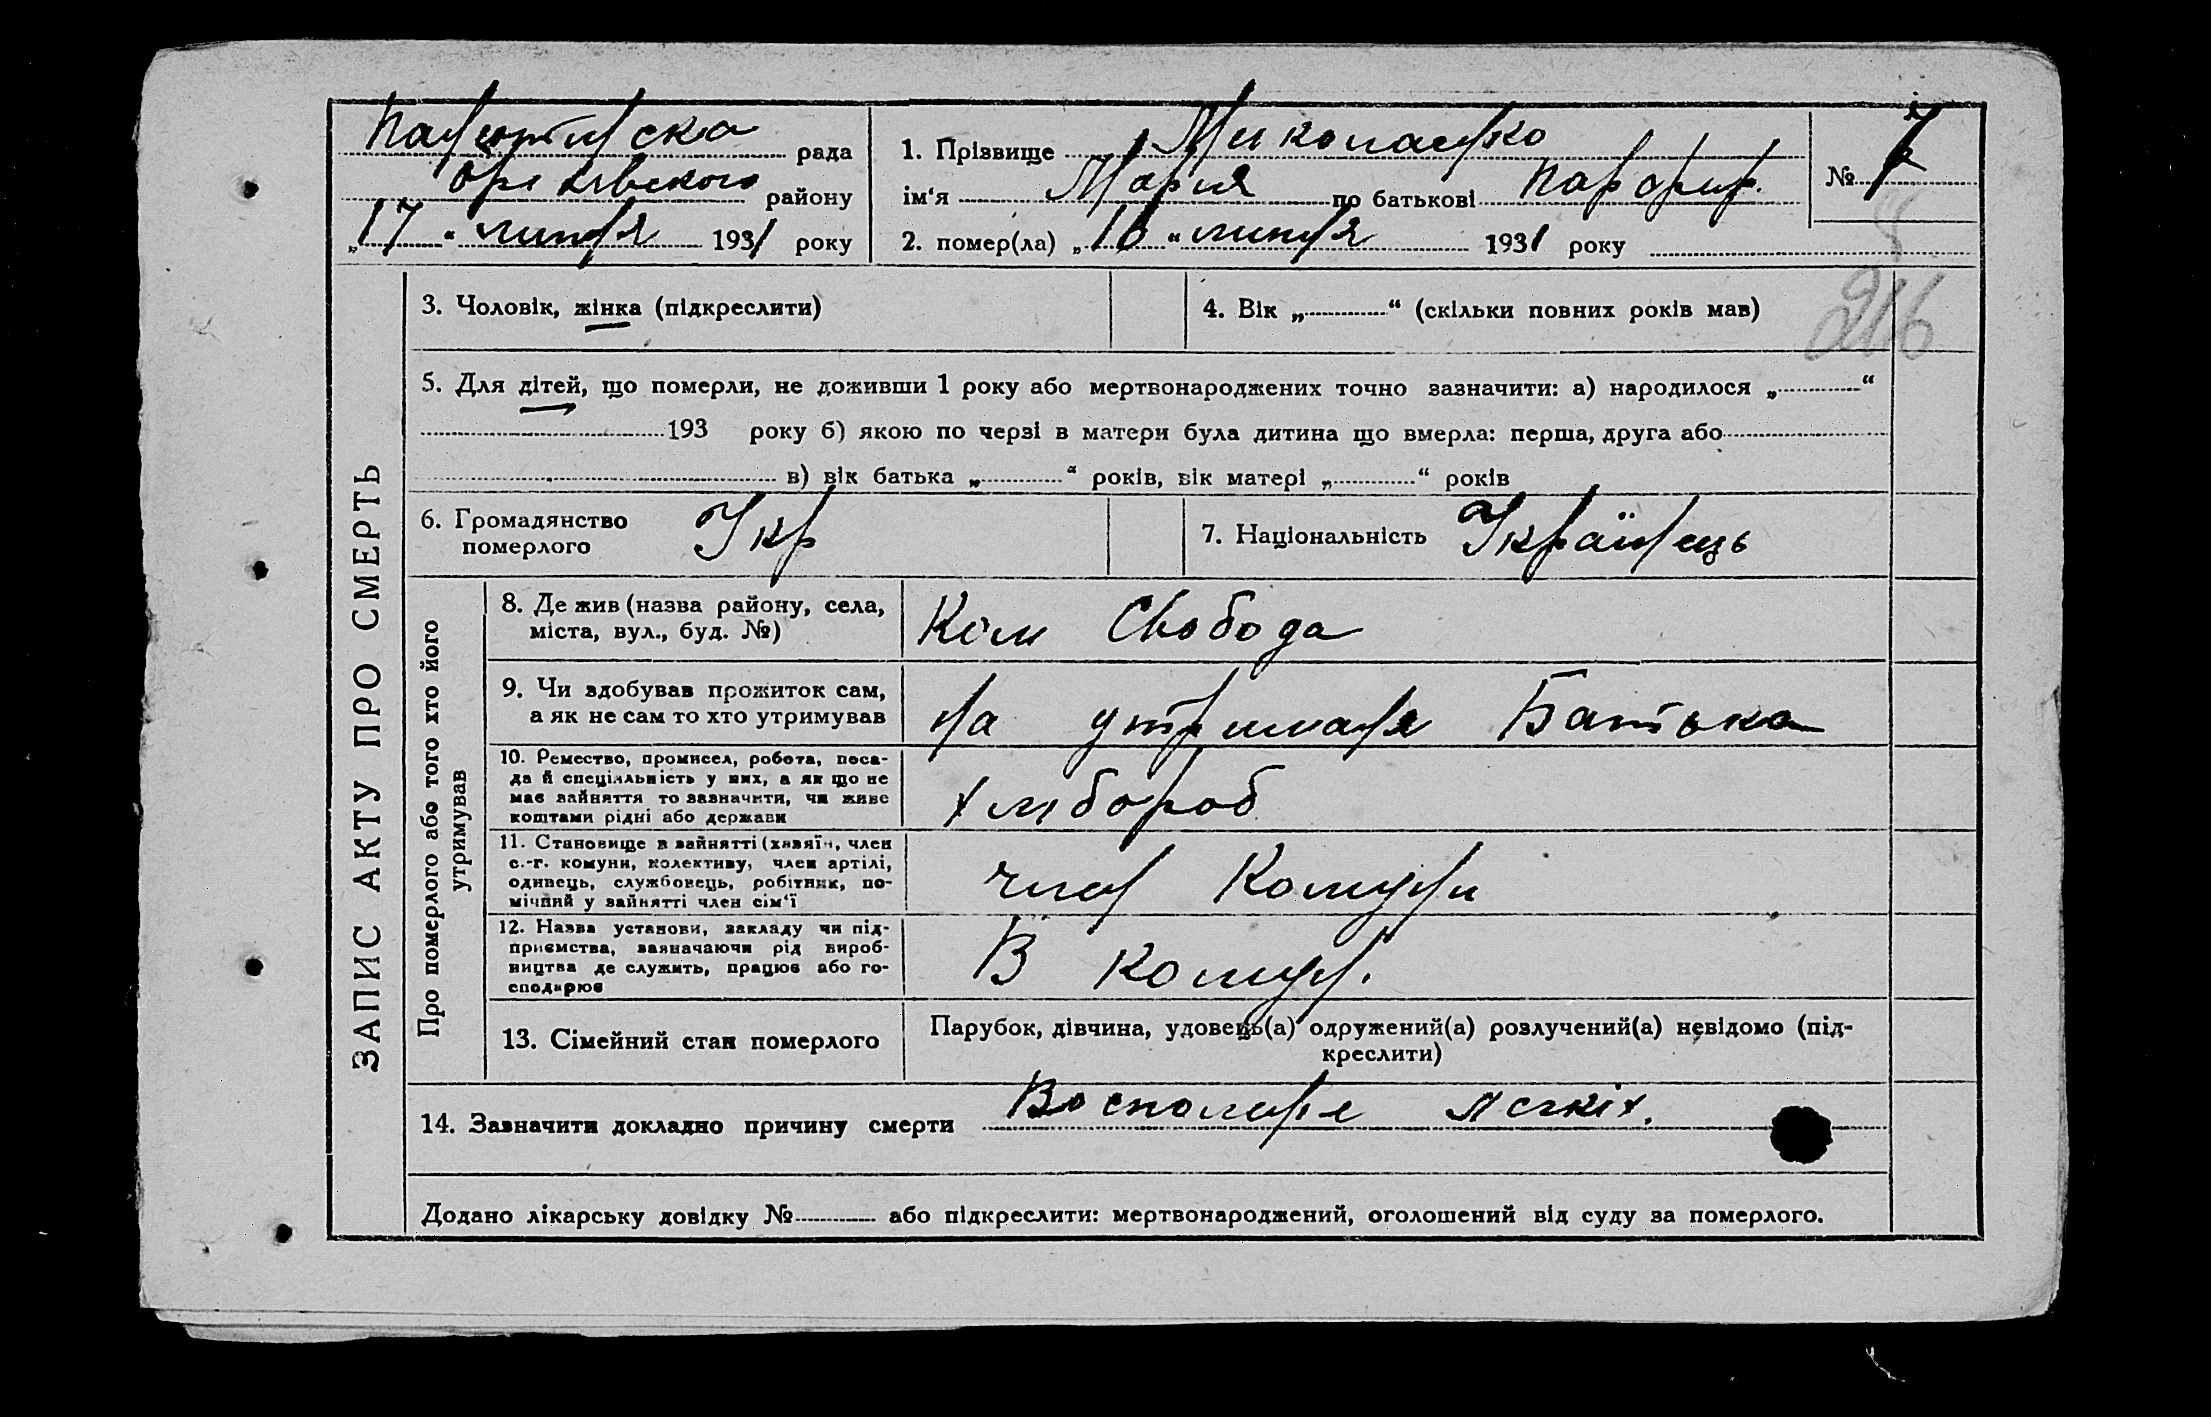 рада
Оріхівського району
„17“ липня 1931 року
1. Прізвище Миколаєнко
ім'я Марія по батькові Парфир.
№ 7
2. помер(ла) „16“ липня 1931 року
216
ЗАПИС АКТУ ПРО СМЕРТЬ
3. Чоловік, жінка (підкреслити)
4. Вік „ “ (скільки повних років мав)
5. Для дітей, що померли, не доживши 1 року або мертвонароджених точно зазначити: а) народилося „ “
193 року б) якою по черзі в матери була дитина що вмерла: перша, друга або
в) вік батька „ “ років, вік матері „ “ років
6. Громадянство померлого Укр
7. Національність Українець
Про померлого або того хто його утримував
8. Де жив (назва району, села,
міста, вул., буд. №)
Ком Свобода
9. Чи здобував прожиток сам,
а як не сам то хто утримував
на утриманя Батька
10. Ремество, промисел, робота, поса-
да й спеціяльність у них, а як що не
має зайняття то зазначити, чи живе
коштами рідні або держави
хлібороб
11. Становище в зайнятті (хазяїн, член
с.-г. комуни, колективу, член артілі,
одинець, службовець, робітник, по-
мічний у зайнятті член сім'ї
член Комуни
12. Назва установи, закладу чи під-
приємства, зазначаючи рід вироб-
ництва де служить, працює або го-
сподарює
В комун.
13. Сімейний стан померлого
Парубок, дівчина, удовець(а) одружений(а) розлучений(а) невідомо (під-
креслити)
14. Зазначити докладно причину смерти Восполеня легкіх.
Додано лікарську довідку № або підкреслити: мертвонароджений, оголошений від суду за померлого.